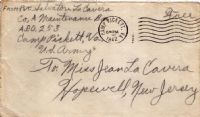 From Pvt. Salvatore La Cavera
Co. A Maintenance Bn
A.P.O. 253
Camp Pickett, Va
U.S. Army
Free
CAMP PICKETT, VA
5 PM
1942
To Miss Jean La Cavera
Hopewell, New Jersey